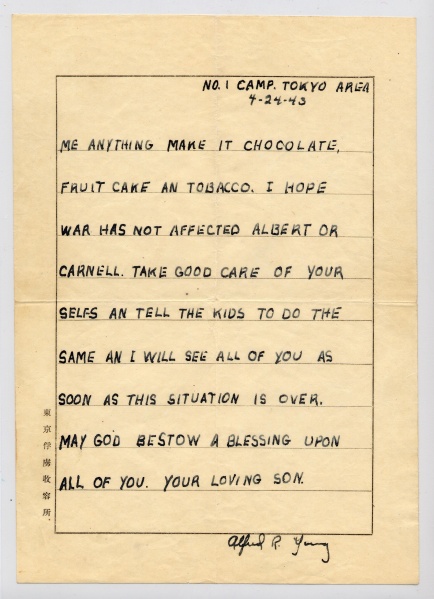 NO. 1 CAMP. TOKYO AREA
4-24-43
ME ANYTHING MAKE IT CHOCOLATE,
FRUIT CAKE AN TOBACCO. I HOPE
WAR HAS NOT AFFECTED ALBERT OR
CARNELL. TAKE GOOD CARE OF YOUR
SELFS AN TELL THE KIDS TO DO THE
SAME AN I WILL SEE ALL OF YOU AS
SOON AS THIS SITUATION IS OVER.
MAY GOD BESTOW A BLESSING UPON
ALL OF YOU. YOUR LOVING SON.
Alfred R. Young
東京俘虜收容所